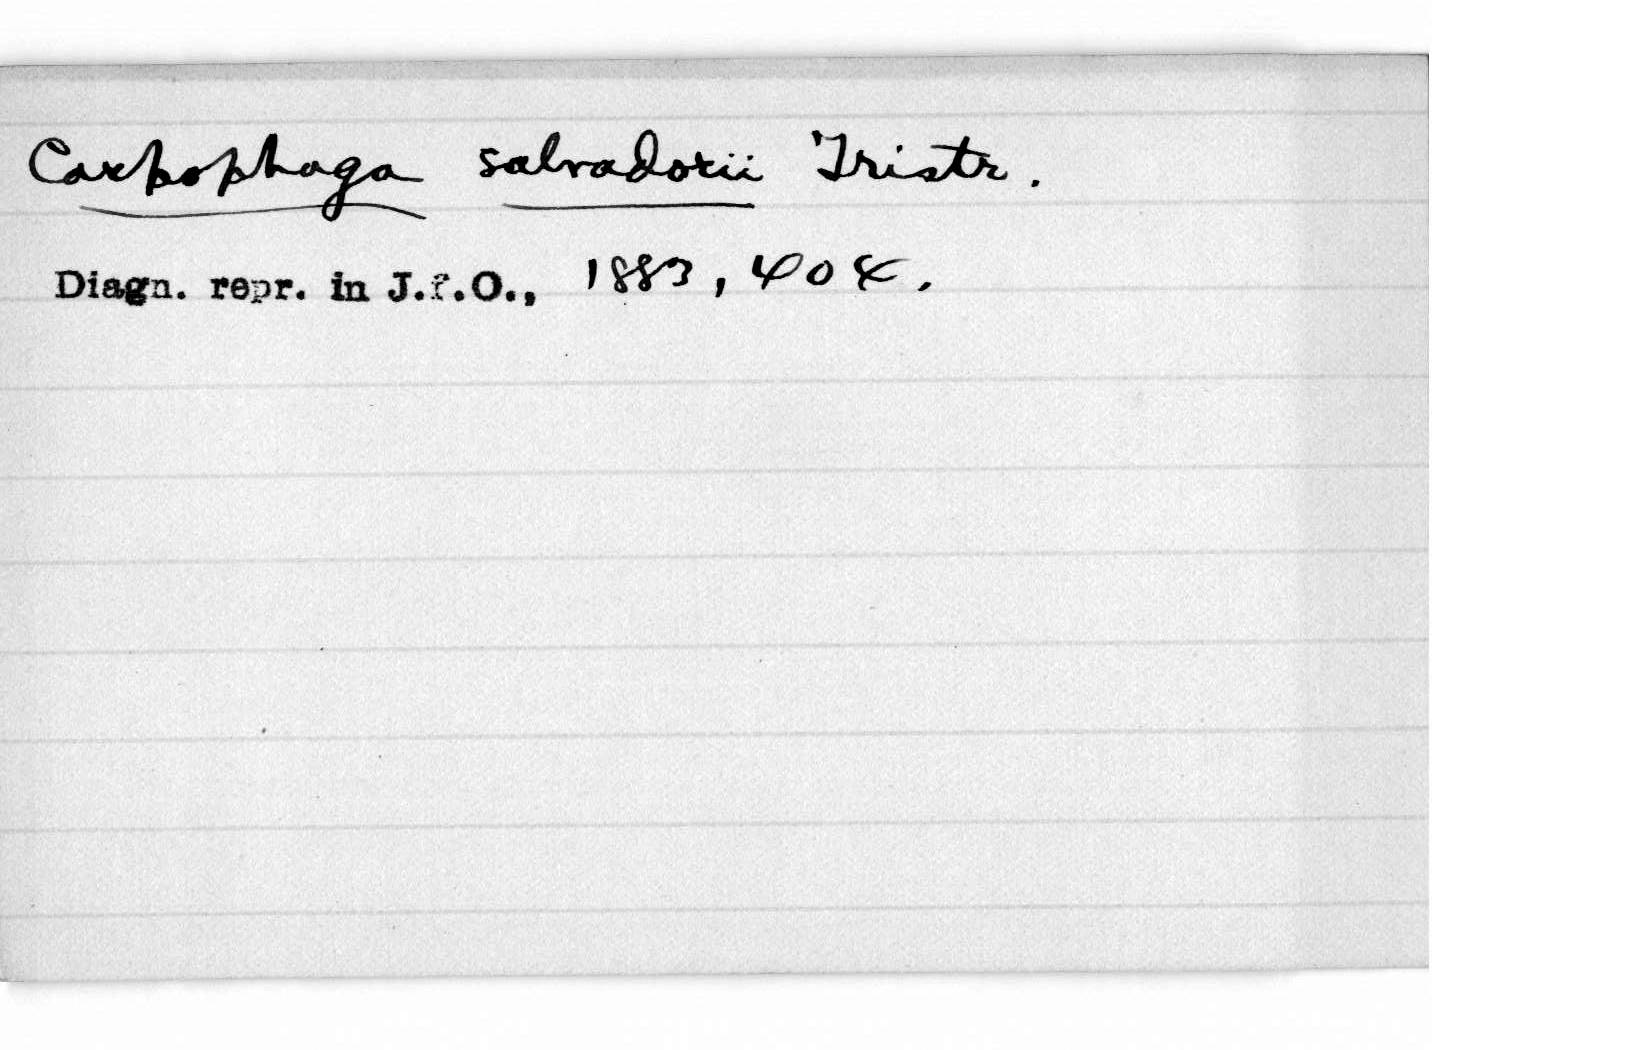 Carpophaga salvadorii Tristr.
Diagn. repr. in J.f.O., 1883, 404.